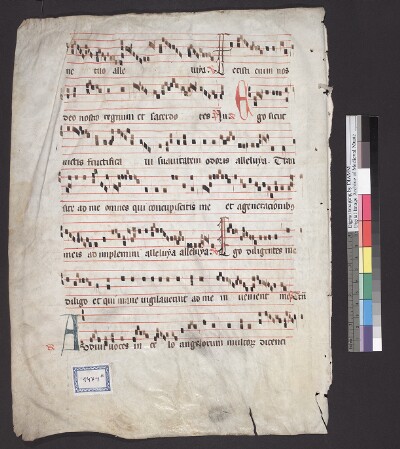 ne tuo alle luya. Fecisti enim nos
deo nostro regnum et sacerdo tes Au Ego sicut
uictis fructifica ui suauitatem odoris alleluya. Tran
site ad me omnes qui concupiscitis me et a generacionibus
meis adimplemini alleluya alleluya. Ego diligentes me
diligo et qui mane vigilauerint ad me in uenient me
Audiui uoces in ce lo angelorum multorum dicenci